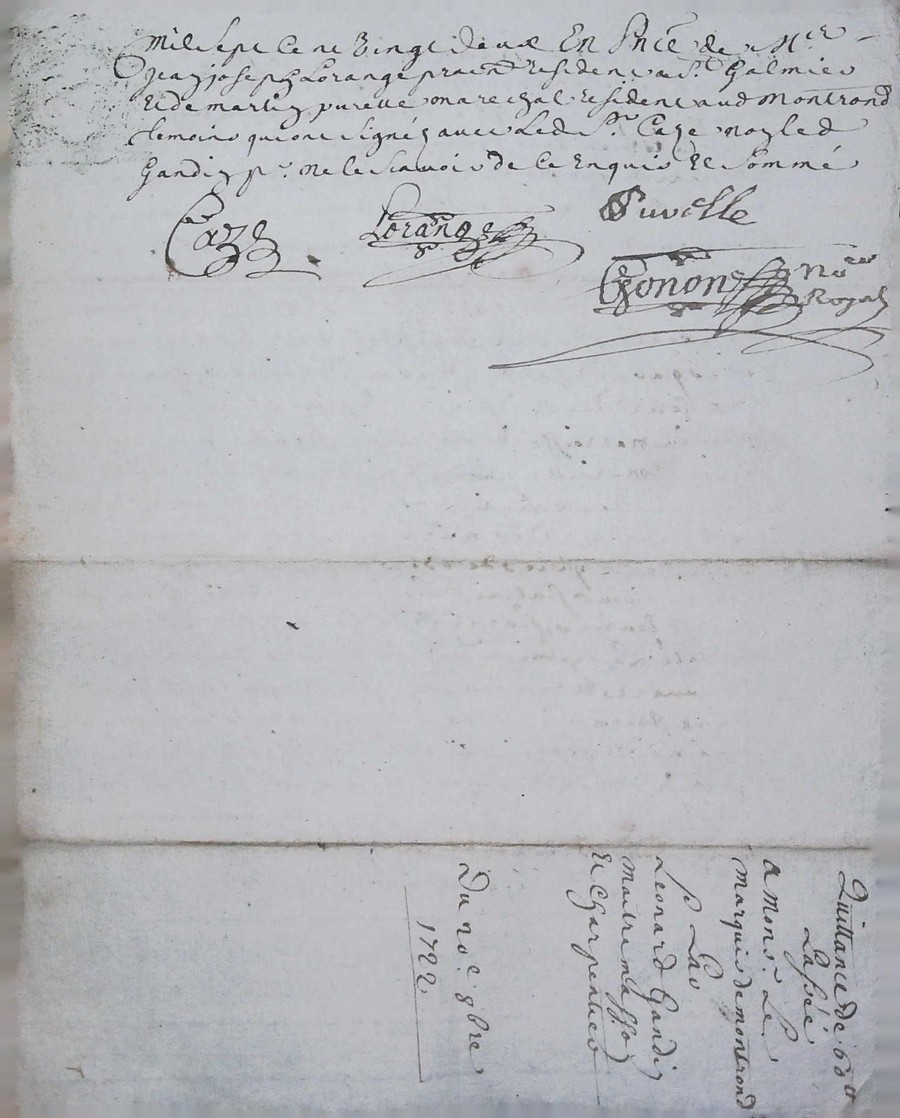 mil sept Cent Vingt deux En Pnce de Mer
Jean joseph Lorange praen resident a St Galmier
Et de martin puvelle marechal resident aud Montrond
temoins qui ont signéz avec Led Sr Caze non led
Gandin pr ne le scavoir de ce Enquis Et sommé
Caze
Lorange
Puvelle
Chonon Nore
Royal
Quittance de 60tt
Passée
a monsr Le
marquis de montrond
P Lar
Leonard Gandin
maitre masson
Et Charpentier
Du 8bre
1722